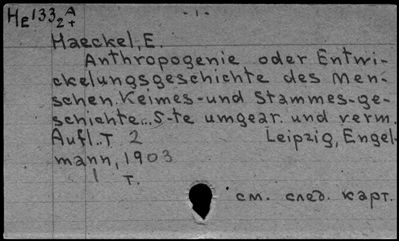 HE 133 2 A+
- 1 -
Haeckel, E.
Anthropogenie oder Entwi-
ckelungsgeschichte des Men-
schen. Keimes-und Stammes-ge-
schichte... 5-te umgear. und verm.
Aufl. T 2 Leipzig, Engel-
mann, 1903
1 т.
см. след. карт.